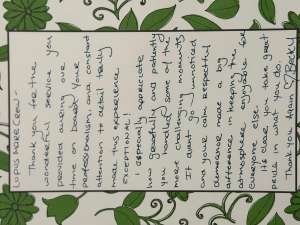 LUPUS MARE CREW-
Thank you for the
wonderful service you
provided during our
time on board. Your
professionalism and constant
attention to detail truly
made this experience
EXCEPTIONAL!
I especially appreciate
how gracefully and patiently
you handled some of the
more challenging moments
It didnt go unnoticed
and your calm, respectful
demeanor made a big
difference in keeping the
atmosphere enjoyable for
everyone else.
It's clear you take great
pride in what you do.
Thank you Again ♡ Becky